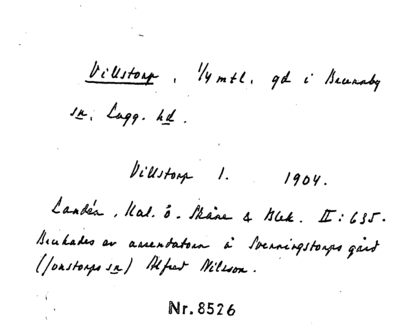 Villstorp, 1/4 mtl, gd i Brunnby
sn, Lugg. hd.
Villstorp 1. 1904.
Landén, Kal. ö. Skåne & Blek. II: 635.
Brukades av arrendatorn å Svenningstorps gård
(Jonstorps sn) Alfred Nilsson.
Nr. 8526